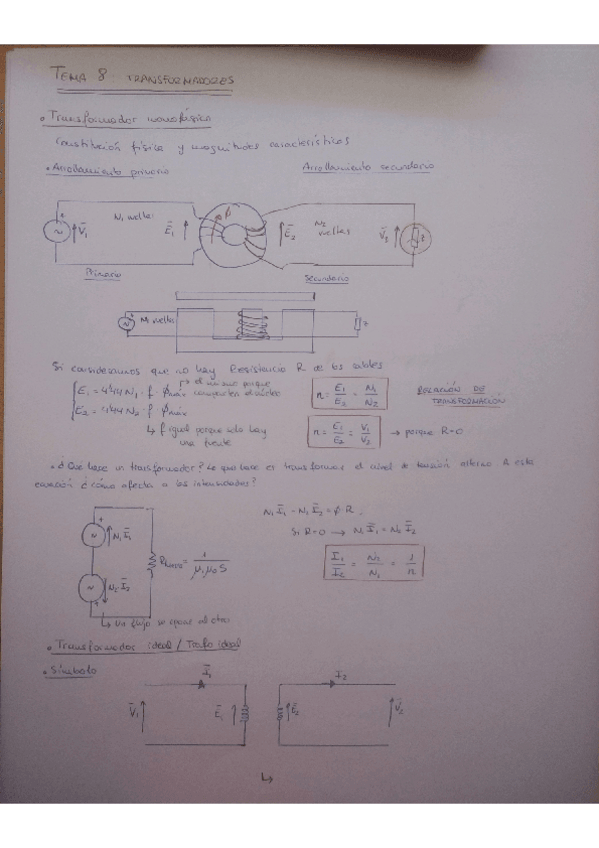 TEMA 8: TRANSFORMADORES
• Transformador monofásico
Constitución física y magnitudes características
• Arrollamiento primario Arrollamiento secundario
N₁ vueltas N₂ vueltas
V̄₁ Ē₁ ϕ Ē₂ V̄₂ Z
Primario Secundario
N₁ vueltas Z
Si consideramos que no hay Resistencia R de los cables
E₁ = 4'44 N₁ · f · ϕmáx → el mismo porque comparten el núcleo
E₂ = 4'44 N₂ · f · ϕmáx
↳ f igual porque solo hay una fuente
n = E₁/E₂ = N₁/N₂ RELACIÓN DE TRANSFORMACIÓN
n = E₁/E₂ = V₁/V₂ → porque R=0
• ¿Qué hace un transformador? Lo que hace es transformar el nivel de tensión alterno. A esta
ecuación ¿cómo afecta a las intensidades?
N₁Ī₁ - N₂Ī₂ = ϕ R
Si R=0 → N₁Ī₁ = N₂Ī₂
N₁Ī₁ N₂·Ī₂ = 1/μ₁μ₀S
I₁/I₂ = N₂/N₁ = 1/n
↳ un flujo se opone al otro
• Transformador ideal / Trafo ideal
• Símbolo
Ī₁ I₂
V̄₁ Ē₁ Ē₂ V̄₂
↳